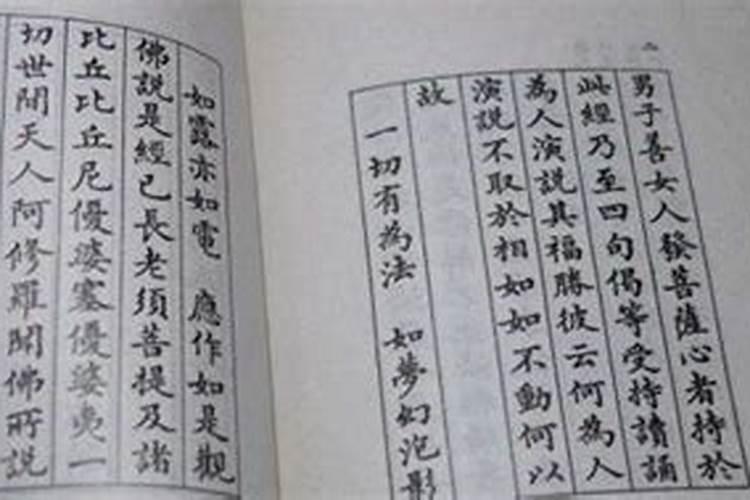 男子善女人發菩薩心者持於
此經乃至四句偈等受持讀誦
為人演說其福勝彼云何為人
演說不取於相如如不動何以
故
一切有為法　如夢幻泡影
如露亦如電　應作如是觀
佛說是經已長老須菩提及諸
比丘比丘尼優婆塞優婆夷一
切世間天人阿修羅聞佛所說